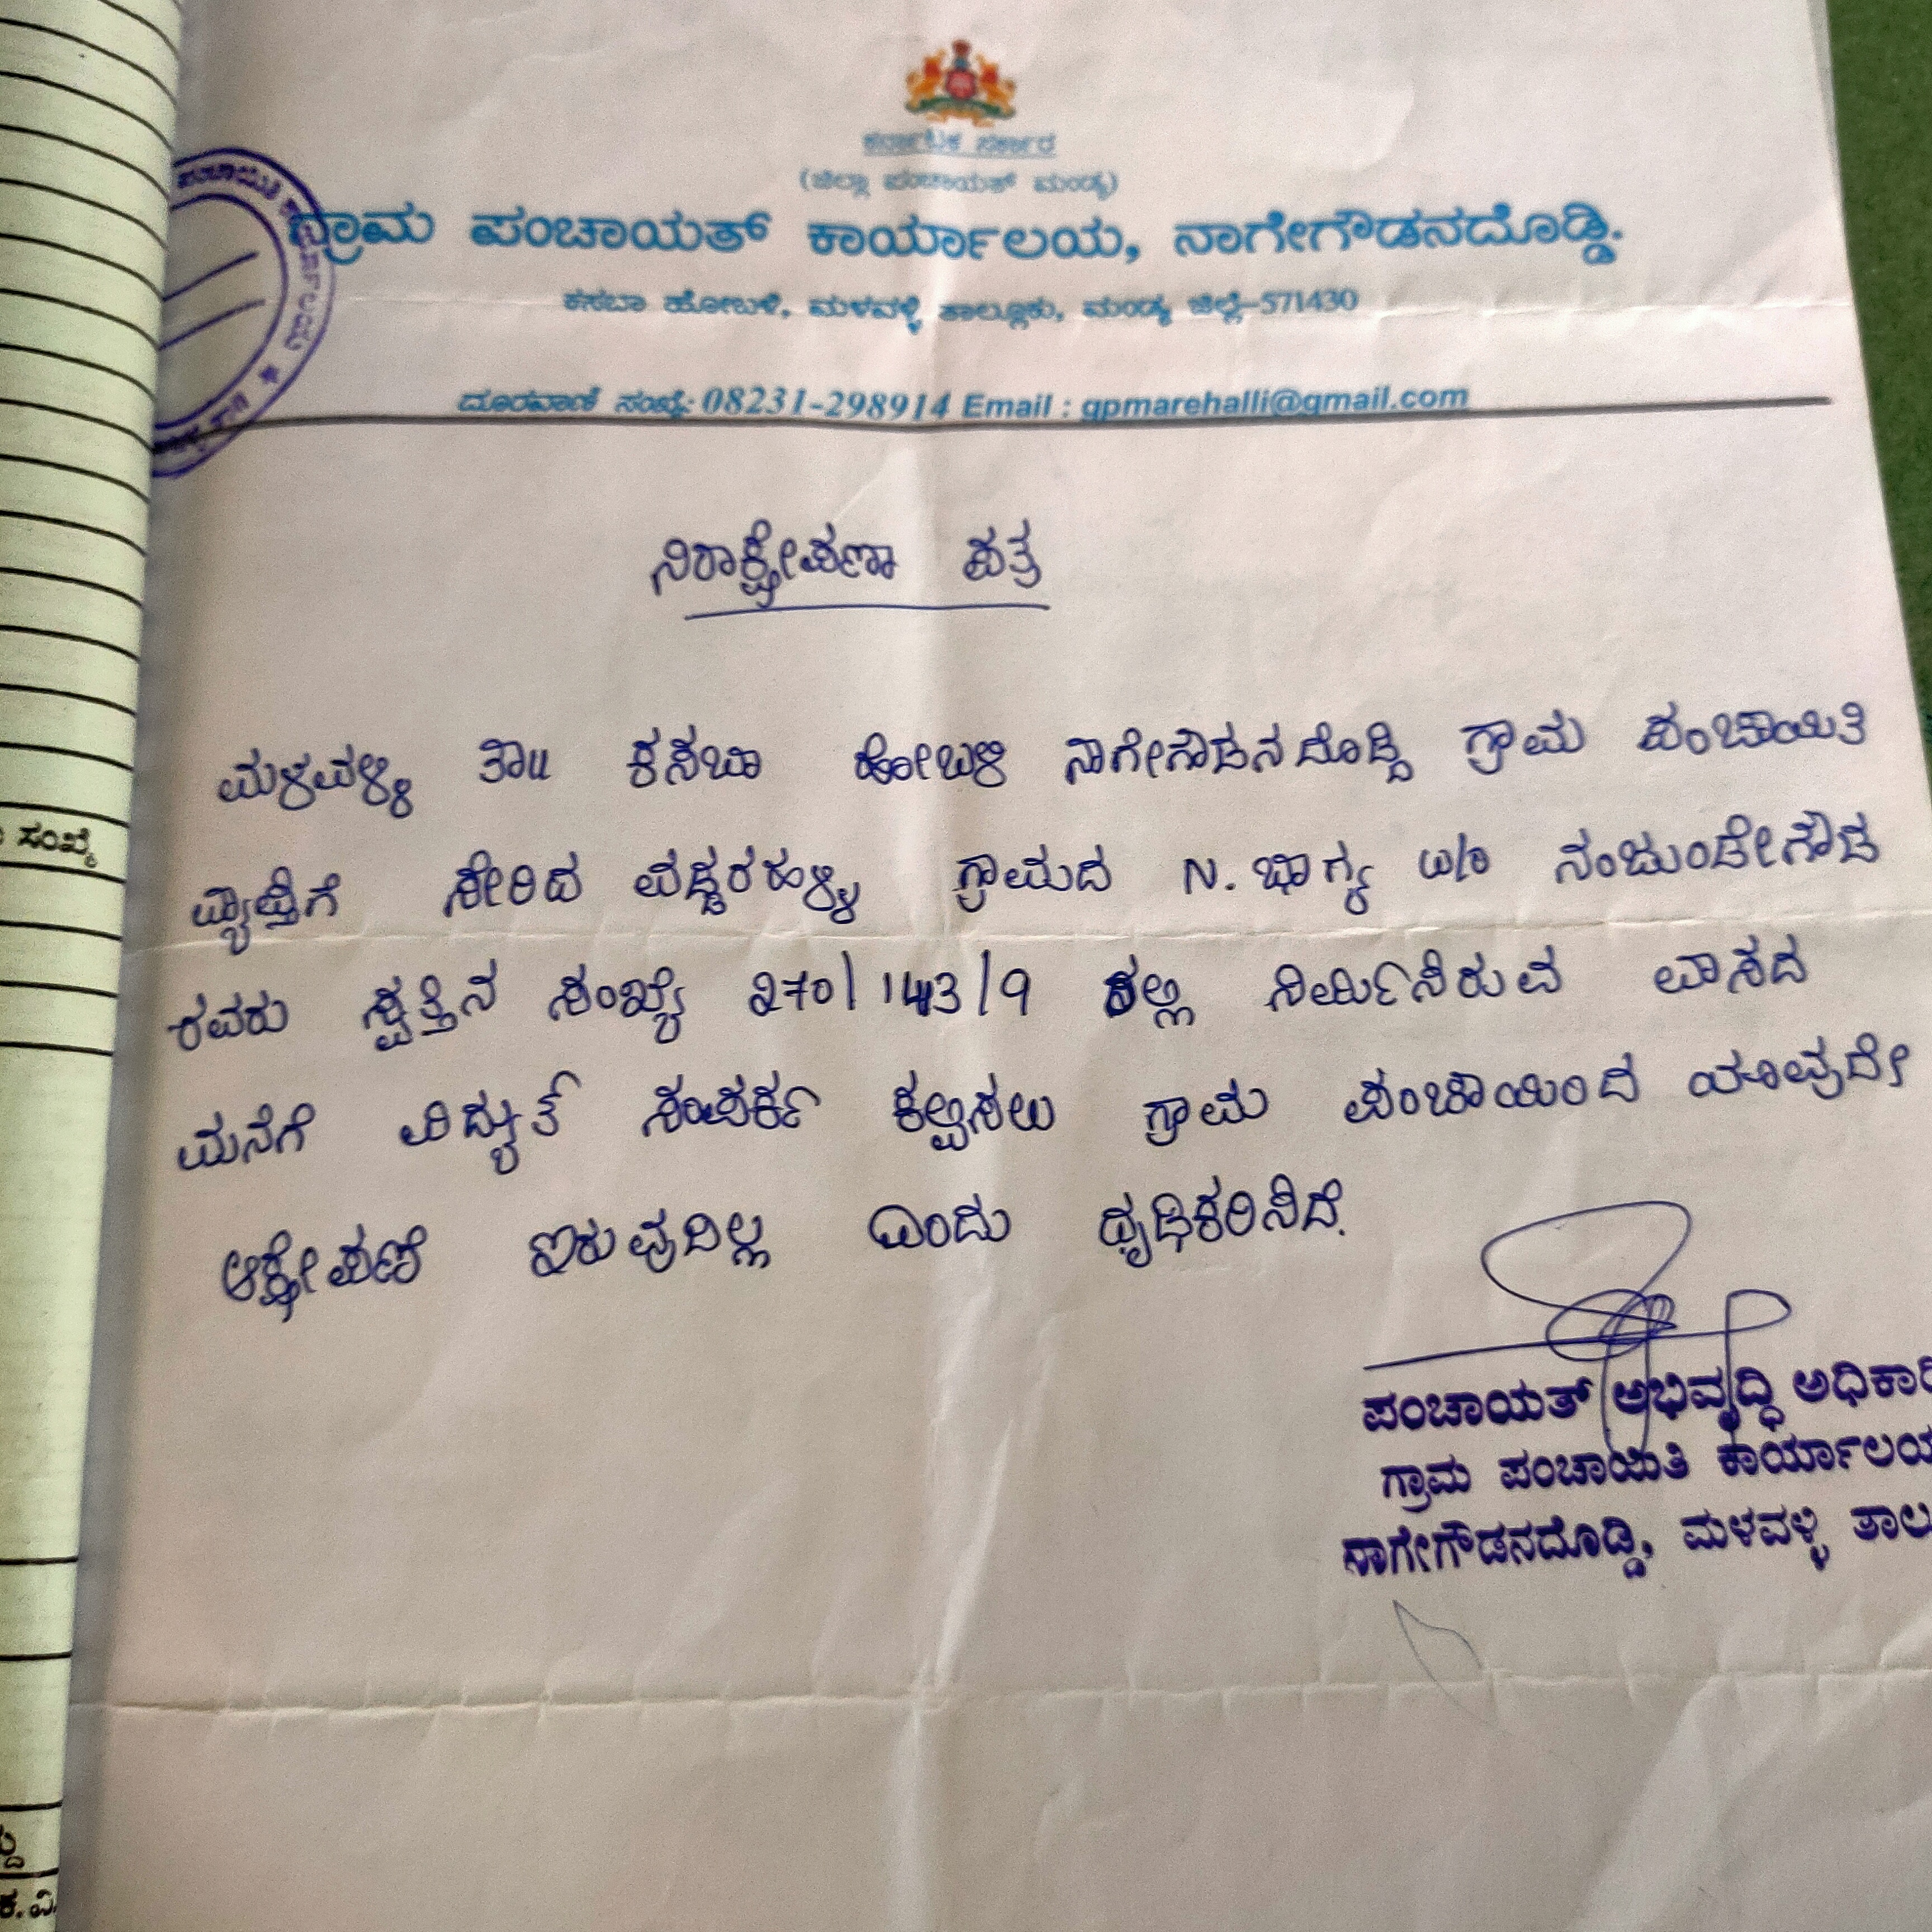 ಕರ್ನಾಟಕ ಸರ್ಕಾರ
(ಜಿಲ್ಲಾ ಪಂಚಾಯತ್ ಮಂಡ್ಯ)
ಗ್ರಾಮ ಪಂಚಾಯತ್ ಕಾರ್ಯಾಲಯ, ನಾಗೇಗೌಡನದೊಡ್ಡಿ.
ಕಸಬಾ ಹೋಬಳಿ, ಮಳವಳ್ಳಿ ತಾಲ್ಲೂಕು, ಮಂಡ್ಯ ಜಿಲ್ಲೆ-571430
ದೂರವಾಣಿ ಸಂಖ್ಯೆ: 08231-298914 Email : gpmarehalli@gmail.com
ನಿರಾಕ್ಷೇಪಣಾ ಪತ್ರ
ಮಳವಳ್ಳಿ ತಾ॥ ಕಸಬಾ ಹೋಬಳಿ ನಾಗೇಗೌಡನದೊಡ್ಡಿ ಗ್ರಾಮ ಪಂಚಾಯಿತಿ
ವ್ಯಾಪ್ತಿಗೆ ಸೇರಿದ ವಡ್ಡರಹಳ್ಳಿ ಗ್ರಾಮದ N. ಭಾಗ್ಯ w/o ನಂಜುಂಡೇಗೌಡ
ರವರು ಸ್ವತ್ತಿನ ಸಂಖ್ಯೆ 270/143/9 ರಲ್ಲಿ ನಿರ್ಮಿಸಿರುವ ವಾಸದ
ಮನೆಗೆ ವಿದ್ಯುತ್ ಸಂಪರ್ಕ ಕಲ್ಪಿಸಲು ಗ್ರಾಮ ಪಂಚಾಯಿಂದ ಯಾವುದೇ
ಆಕ್ಷೇಪಣೆ ಇರುವುದಿಲ್ಲ ಎಂದು ಧೃಢಿಕರಿಸಿದೆ.
ಪಂಚಾಯತ್ ಅಭಿವೃದ್ಧಿ ಅಧಿಕಾರಿ
ಗ್ರಾಮ ಪಂಚಾಯಿತಿ ಕಾರ್ಯಾಲಯ
ನಾಗೇಗೌಡನದೊಡ್ಡಿ, ಮಳವಳ್ಳಿ ತಾಲ
ಸಂಖ್ಯೆ